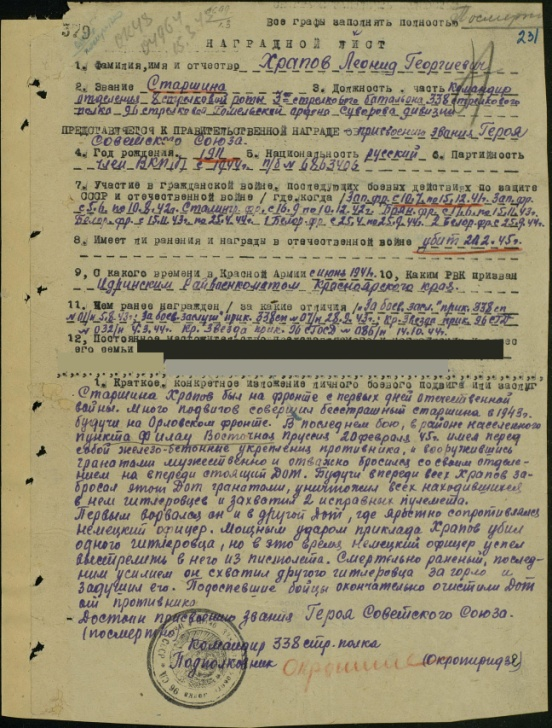 329
Посмертно
Все графы заполнять полностью
231
15.3.45
НАГРАДНОЙ ЛИСТ
1. Фамилия, имя и отчество Храпов Леонид Георгиевич
2. Звание Старшина 3. Должность, часть Командир
отделения 8 стрелковой роты 3го стрелкового батальона 338 стрелкового
полка 96 стрелковой Гомельской ордена Суворова дивизии
ПРЕДСТАВЛЯЕТСЯ К ПРАВИТЕЛЬСТВЕННОЙ НАГРАДЕ присвоению звания Героя
Советского Союза.
4. Год рождения 1911 5. Национальность русский 6. Партийность
член ВКП/б с 1944г. п/б № 6803405
7. Участие в гражданской войне, последующих боевых действиях по защите
СССР и отечественной войне /где, когда/ Зап. фр. с 10.7. по 15.12.41. Зап. фр.
с 5.6. по 10.8.42г. Сталингр. фр. с 16.9 по 10.12.42г. Брян. фр. с 1.6. по 15.11.43г.
Белор. фр. с 15.11.43г. по 25.4.44г. 1 Белор. фр. с 25.4. по 25.9.44г. 2 Белор. фр. с 25.9.44г.
8. Имеет ли ранения и награды в отечественной войне убит 20.2.45г.
9. С какого времени в Красной Армии с июня 1941. 10. Каким РВК призван
Идринским Райвоенкоматом Красноярского края.
11. Чем ранее награжден /за какие отличия/ "За боев. засл." прик. 338 сп
12. Постоянный
его семьи
1. Краткое, конкретное изложение личного боевого подвига или заслуг
Старшина Храпов был на фронте с первых дней отечественной
войны. Много подвигов совершил бесстрашный старшина в 1943г.
будучи на Орловском фронте. В последнем бою, в районе населенного
пункта Филау Восточная Пруссия 20 февраля 45г. имея перед
собой железо-бетонные укрепления противника, вооружившись
гранатами мужественно и отважно бросился со своим отделе-
нием на впереди стоящий Дот. Будучи впереди всех Храпов за-
бросал этот Дот гранатами, уничтожил всех находившихся
в нем гитлеровцев и захватил 2 исправных пулемета.
Первым ворвался он и в другой Дот, где яростно сопротивлялся
немецкий офицер. Мощным ударом приклада Храпов убил
одного гитлеровца, но в это время немецкий офицер успел
выстрелить в него из пистолета. Смертельно раненый, послед-
ним усилием он схватил другого гитлеровца за горло и
задушил его. Подоспевшие бойцы окончательно очистили Дот
от противника.
Достоин присвоению звания Героя Советского Союза.
(посмертно)
Командир 338 стр. полка
Подполковник (Окропиридзе)